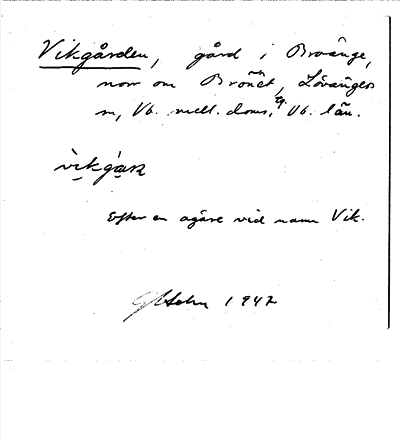 Vikgården, gård i Broänge,
norr om Brönet, Lövångers
sn, Vb. mell. doms. o. Vb. län.
vìkgàɳ
Efter en ägare vid namn Vik.
Holm 1947